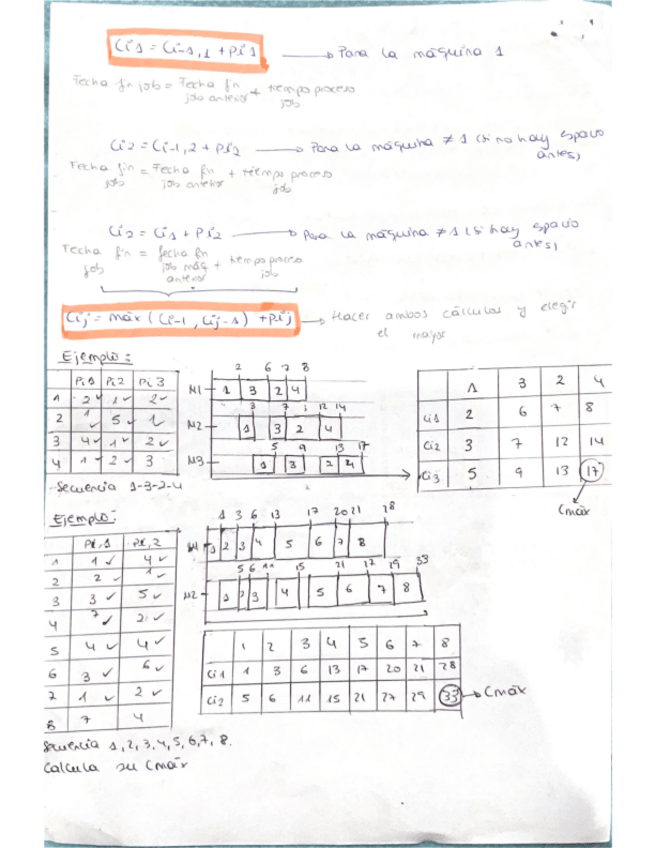 Ci1 = Ci-1,1 + Pi1 → Para la máquina 1
Fecha fin job = Fecha fin job anterior + tiempo proceso job
Ci2 = Ci-1,2 + Pi2 → Para la máquina ≠ 1 (si no hay espacio antes)
Fecha fin job = Fecha fin job anterior + tiempo proceso job
Ci2 = Ci1 + Pi2 → Para la máquina ≠ 1 (si hay espacio antes)
Fecha fin job = fecha fin job máq anterior + tiempo proceso job
Cij = máx (Ci-1, Cij-1) + Pij → Hacer ambos cálculos y elegir el mayor
Ejemplo:
Pi1 Pi2 Pi3
1 2 1 2
2 1 5 1
3 4 1 2
4 1 2 3
Secuencia 1-3-2-4
2 6 7 8
M1 1 3 2 4
3 7 12 14
M2 1 3 2 4
5 9 13 17
M3 1 3 2 4
1 3 2 4
Ci1 2 6 7 8
Ci2 3 7 12 14
Ci3 5 9 13 17
Cmáx
Ejemplo:
Pi,1 Pi,2
1 1 4
2 2 1
3 3 5
4 7 2
5 4 4
6 3 6
7 1 2
8 7 4
Secuencia 1,2,3,4,5,6,7,8.
Calcula su Cmáx
1 3 6 13 17 20 21 28
M1 1 2 3 4 5 6 7 8
5 6 11 15 21 27 29 33
M2 1 2 3 4 5 6 7 8
1 2 3 4 5 6 7 8
Ci1 1 3 6 13 17 20 21 28
Ci2 5 6 11 15 21 27 29 33 → Cmáx